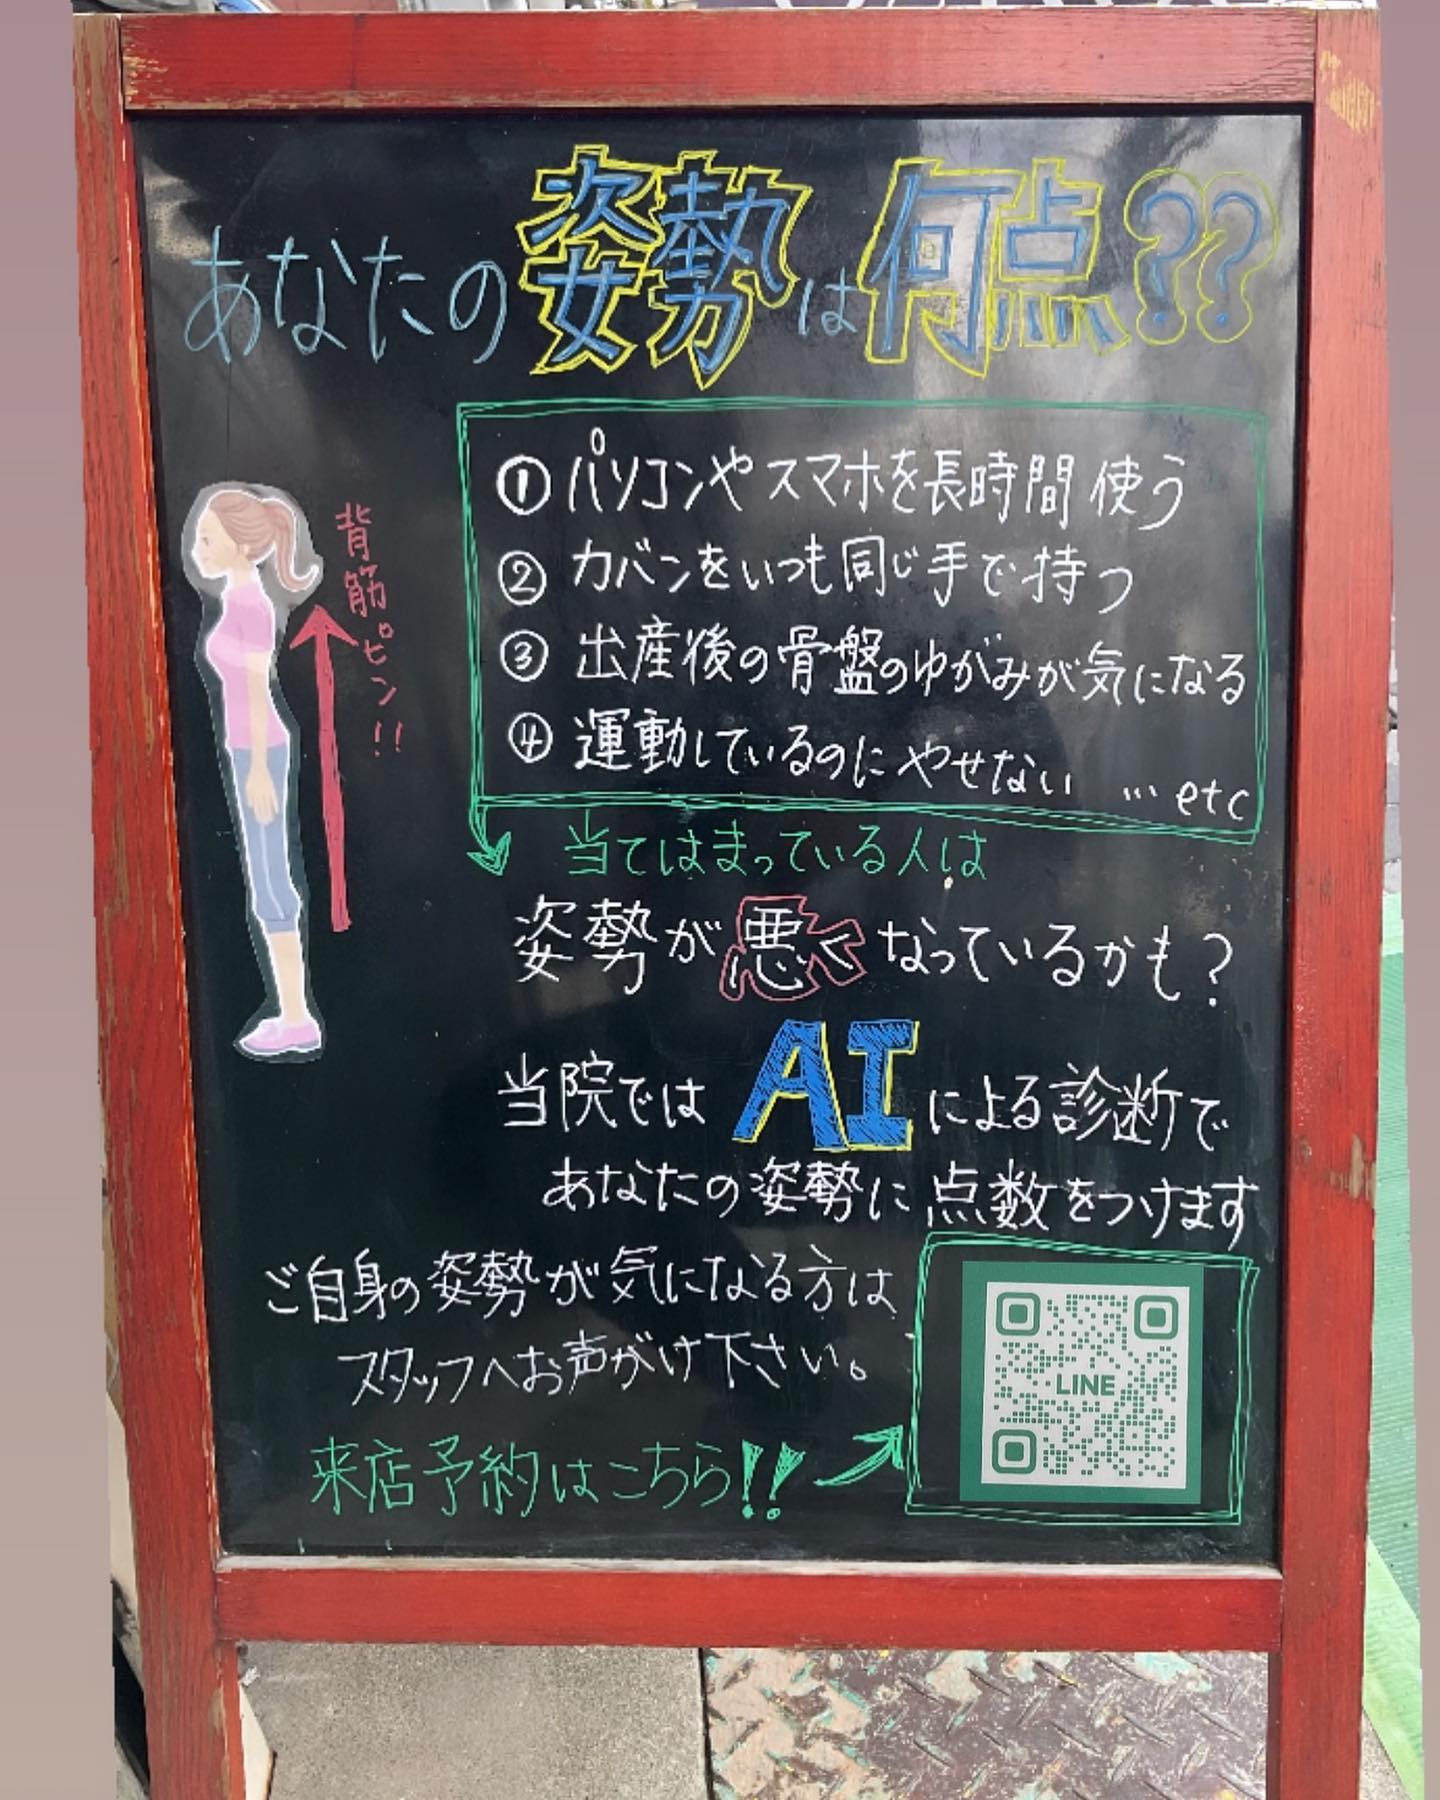 あなたの姿勢は何点??
背筋ピン!!
①パソコンやスマホを長時間使う
②カバンをいつも同じ手で持つ
③出産後の骨盤のゆがみが気になる
④運動しているのにやせない …etc
当てはまっている人は
姿勢が悪くなっているかも?
当院ではAIによる診断で
あなたの姿勢に点数をつけます
ご自身の姿勢が気になる方は
スタッフへお声がけ下さい。
LINE
来店予約はこちら!!